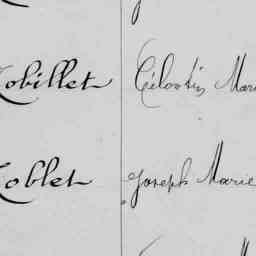 obillet Célestin Mari
oblet Joseph Marie